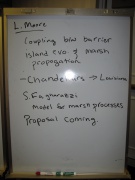 L. Moore
Coupling b/w barrier
island evo. & marsh
propogation
- Chandeleurs → Louisiana
S. Fagherazzi
model for marsh processes
Proposal coming.